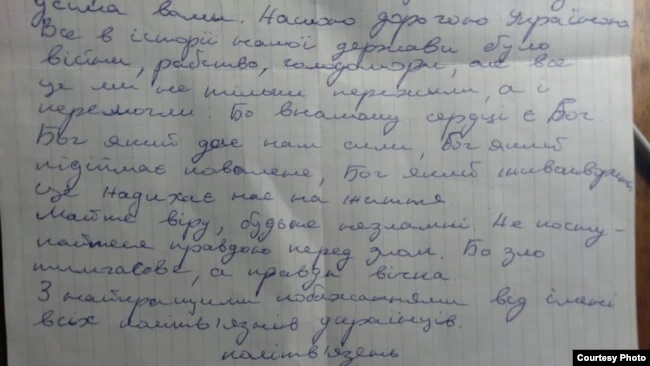 усіма вами. Нашою дорогою Україною
Все в історії нашої держави було
війни, рабство, голодомори, але все
це ми не тільки пережили, а і
перемогли. Бо внашому серці є Бог.
Бог який дає нам сили, Бог який
підіймає повалене, Бог який
це надихає нас на життя.
Майте віру, будьте незламні. Не посту-
пайтеся правдою перед злом. Бо зло
тимчасове, а правда вічна.
З найкращими побажаннями від імені
всіх політв'язнів українців.
політв'язень
Courtesy Photo